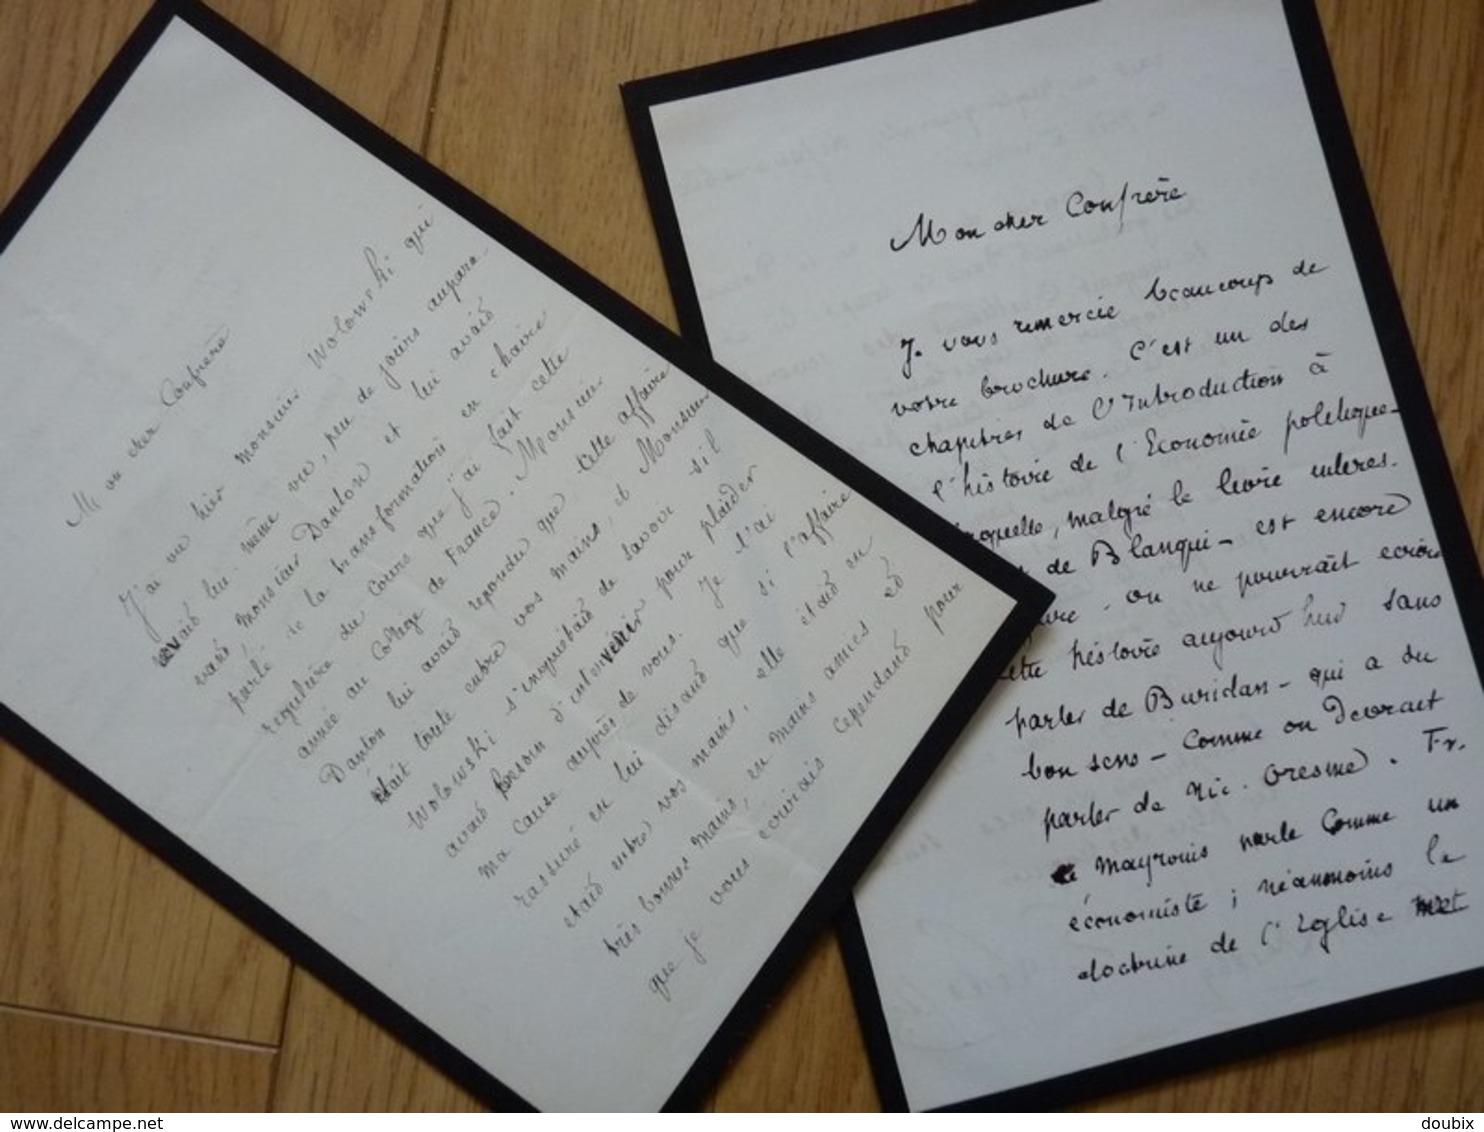 Mon cher Confrère
J'ai vu hier monsieur Wolowski qui
avait lui-même vu, peu de jours aupara-
vant, monsieur Danton et lui avait
parlé de la transformation en chaire
régulière du cours que j'ai fait cette
année au Collège de France. Monsieur
Danton lui avait répondu que cette affaire
était toute entre vos mains, et Monsieur
Wolowski s'inquiétait de savoir s'il
avait besoin d'intervenir pour plaider
ma cause auprès de vous. Je l'ai
rassuré en lui disant que si l'affaire
était entre vos mains, elle était en
très bonnes mains, en mains amies et
que je vous écrirais cependant pour
Mon cher Confrère
Je vous remercie beaucoup de
votre brochure. C'est un des
chapitres de l'Introduction à
l'histoire de l'Economie politique_
laquelle, malgré le livre intéres.
de Blanqui _ est encore
. On ne pourrait écrire
cette histoire aujourd'hui sans
parler de Buridan _ qui a du
bon sens _ comme on devrait
parler de Nic. Oresme. Fr.
Mayronis parle comme un
économiste ; néanmoins la
doctrine de l'Eglise met
www.delcampe.net
doubix